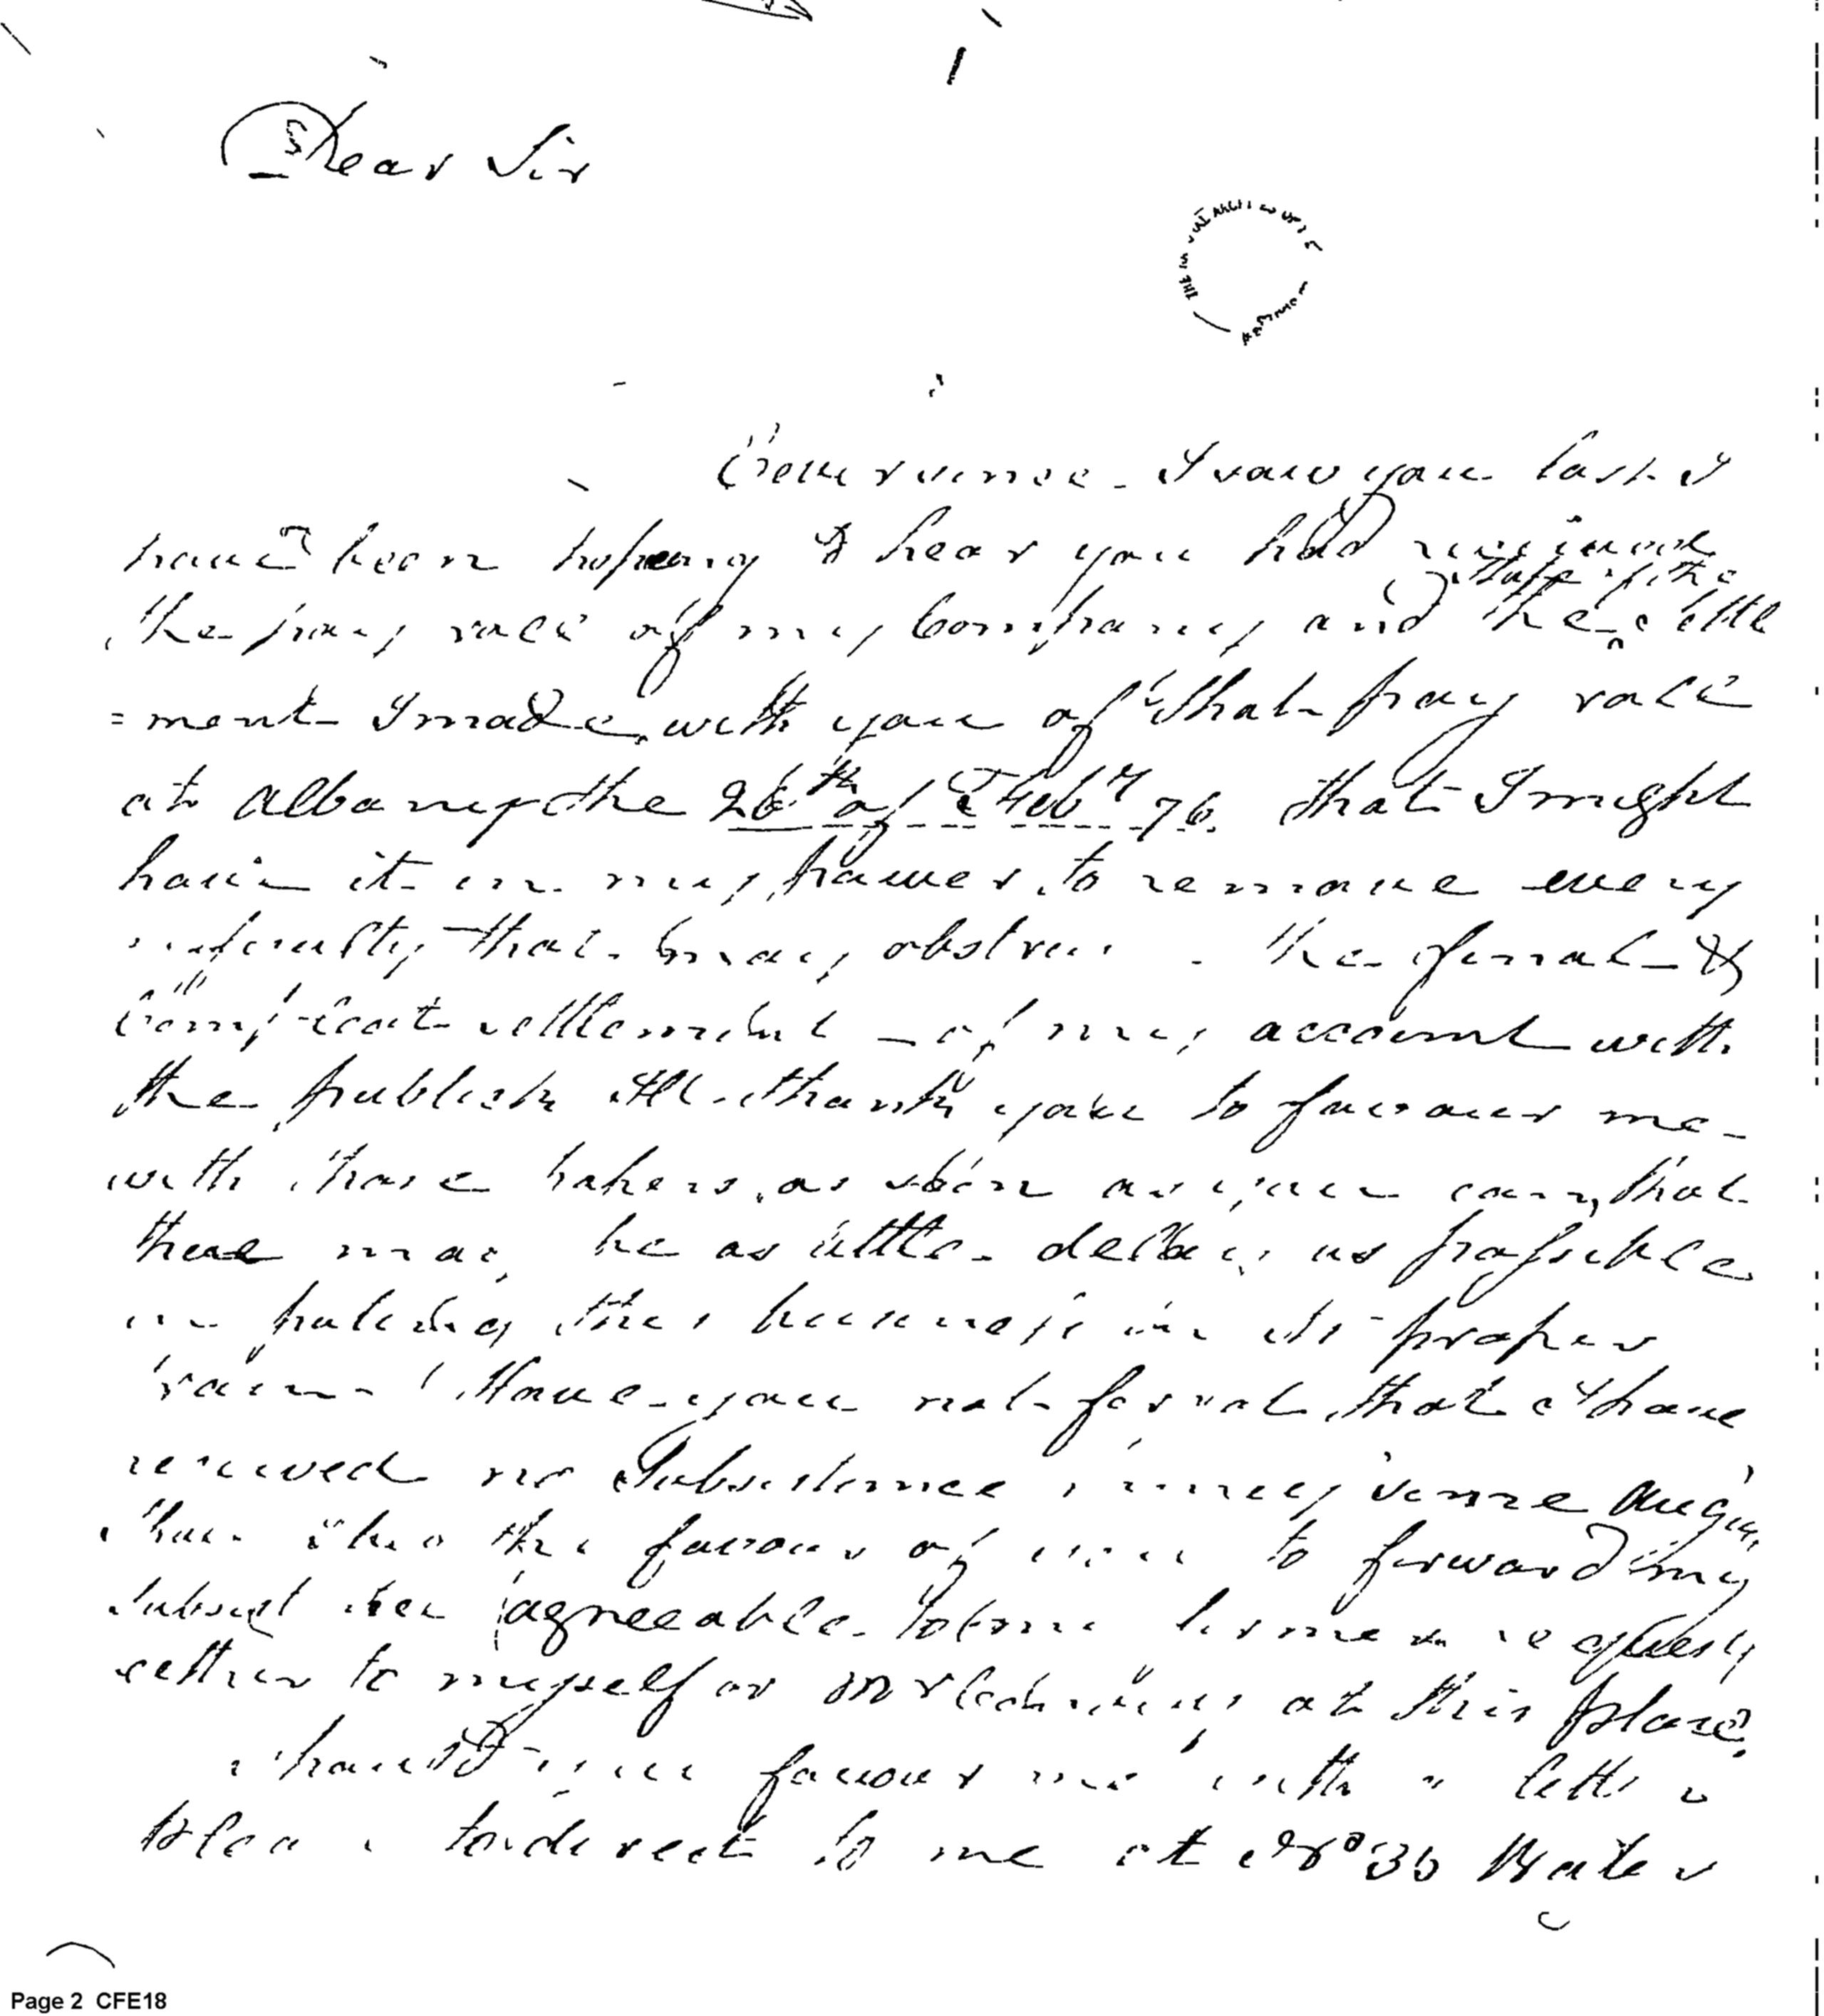 Dear Sir
Ever since I saw you last I
have been hoping to hear you had
the pay role of my Company and the settle
state of the
=ment I made with you of that pay role
at Albany the 26th of Feby 76. that I might
have it in my power to remove every
that may the final &
Compleat settlement of my account with
the publick Ill thank you to favour me
with those papers as soon as you can, that
there may be as little delay as possible
in puting this business in its proper
train Have you not forgot that I have
received no Subsistence since
the favour of you to forward my
agreeable to
either to myself or Mr at this place
you favour me with a letter
to direct to me at No 35 Water
Page 2 CFE18